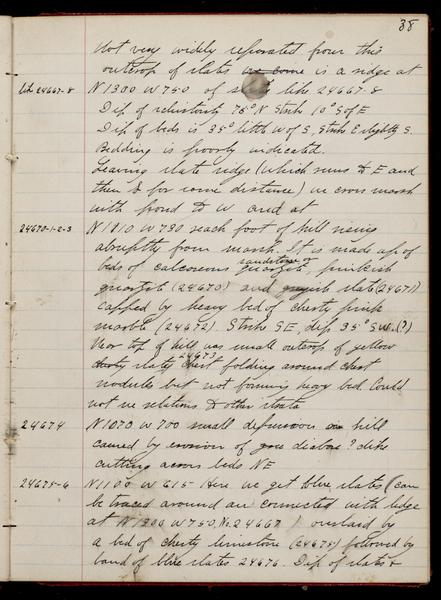 38
Not very widely separated from this
outcrop of slates we come is a ridge at
24667-8 N 1300 W 750 of slate like 24667-8
Dip of schistosity 75° N Strike 10° S of E
Dip of beds is 35° little W of S, Strike E slightly S.
Bedding is poorly indicated.
Leaving slate ridge (which runs to E and
then S for some distance) we cross marsh
with pond to W and at
24670-1-2-3 N 1110 W 730 reach foot of hill rising
abruptly from marsh. It is made up of
sandstone or
beds of calcareous quartzite, pinkish
quartzite (24670) and slate (24671)
capped by heavy bed of cherty pink
marble (24672). Strike SE, dip 35° SW. (?)
Near top of hill was small outcrop of yellow
24673
cherty slaty chert folding around chert
nodules but not forming heavy bed. Could
not see relations to other strata
24674 N 1070 W 700 small depression in hill
caused by erosion of diabase? dike
cutting across beds NE
24675-6 N 1100 W 615 Here we get blue slates (can
be traced around and connected with ledge
at N 1300 W 750, No. 24667) overlaid by
a bed of cherty limestone (24675) followed by
band of blue slates 24676. Dip of slates &